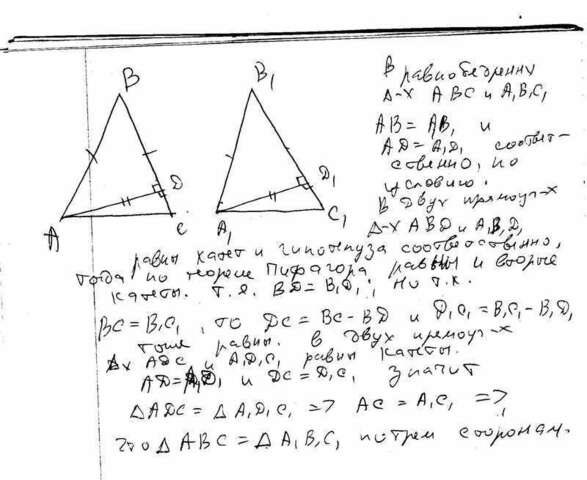 B B₁
D D₁
A C A₁ C₁
В равнобедренных
Δ-х ABC и A₁B₁C₁
AB = A₁B₁ и
AD = A₁D₁ соответ-
ственно, по
условию.
В двух прямоуг-х
Δ-х ABD и A₁B₁D₁
равны катет и гипотенуза соответственно,
тогда по теореме Пифагора равны и вторые
катеты. Т.е. BD = B₁D₁; но т.к.
BC = B₁C₁, то DC = BC - BD и D₁C₁ = B₁C₁ - B₁D₁
тоже равны. В двух прямоуг-х
Δх ADC и A₁D₁C₁ равны катеты.
AD = A₁D₁ и DC = D₁C₁ значит
ΔADC = ΔA₁D₁C₁ => AC = A₁C₁ =>
что ΔABC = ΔA₁B₁C₁ по трем сторонам.